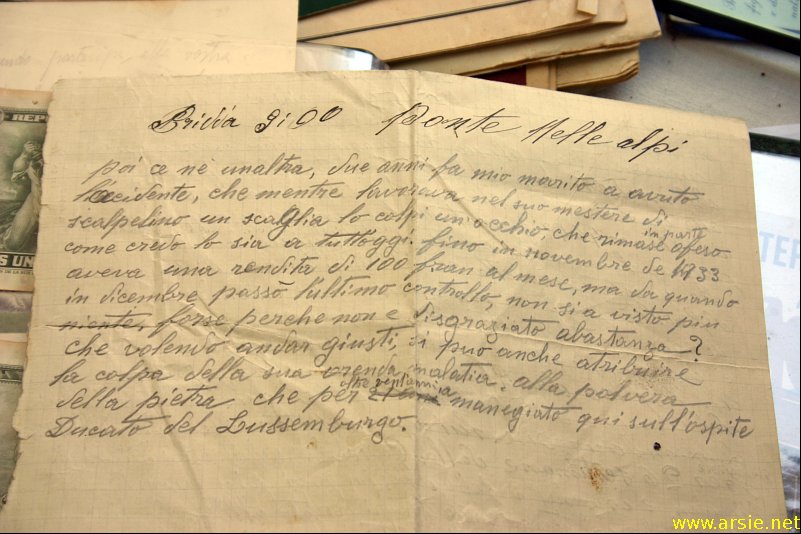 ponte Nelle alpi
poi ce nè unaltra, due anni fa mio marito à avuto
laccidente, che mentre lavorava nel suo mestere di
scalpelino un scaglia lo colpi un'occhio, che rimase in parte ofeso
come credo lo sia a tutt'oggi. fino in novembre de 1933
aveva una rendita di 100 fran al mese, ma da quando
in dicembre passò l'ultimo controllo, non si a visto piu
niente, forse perche non e disgraziato abastanza?
che volendo andar giusti, si può anche atribuire
la colpa della sua orenda malatia. alla polvera
della pietra che per oltre ventannia manegiato qui sull'ospite
Ducato del Lussemburgo.
REP
www.arsie.net